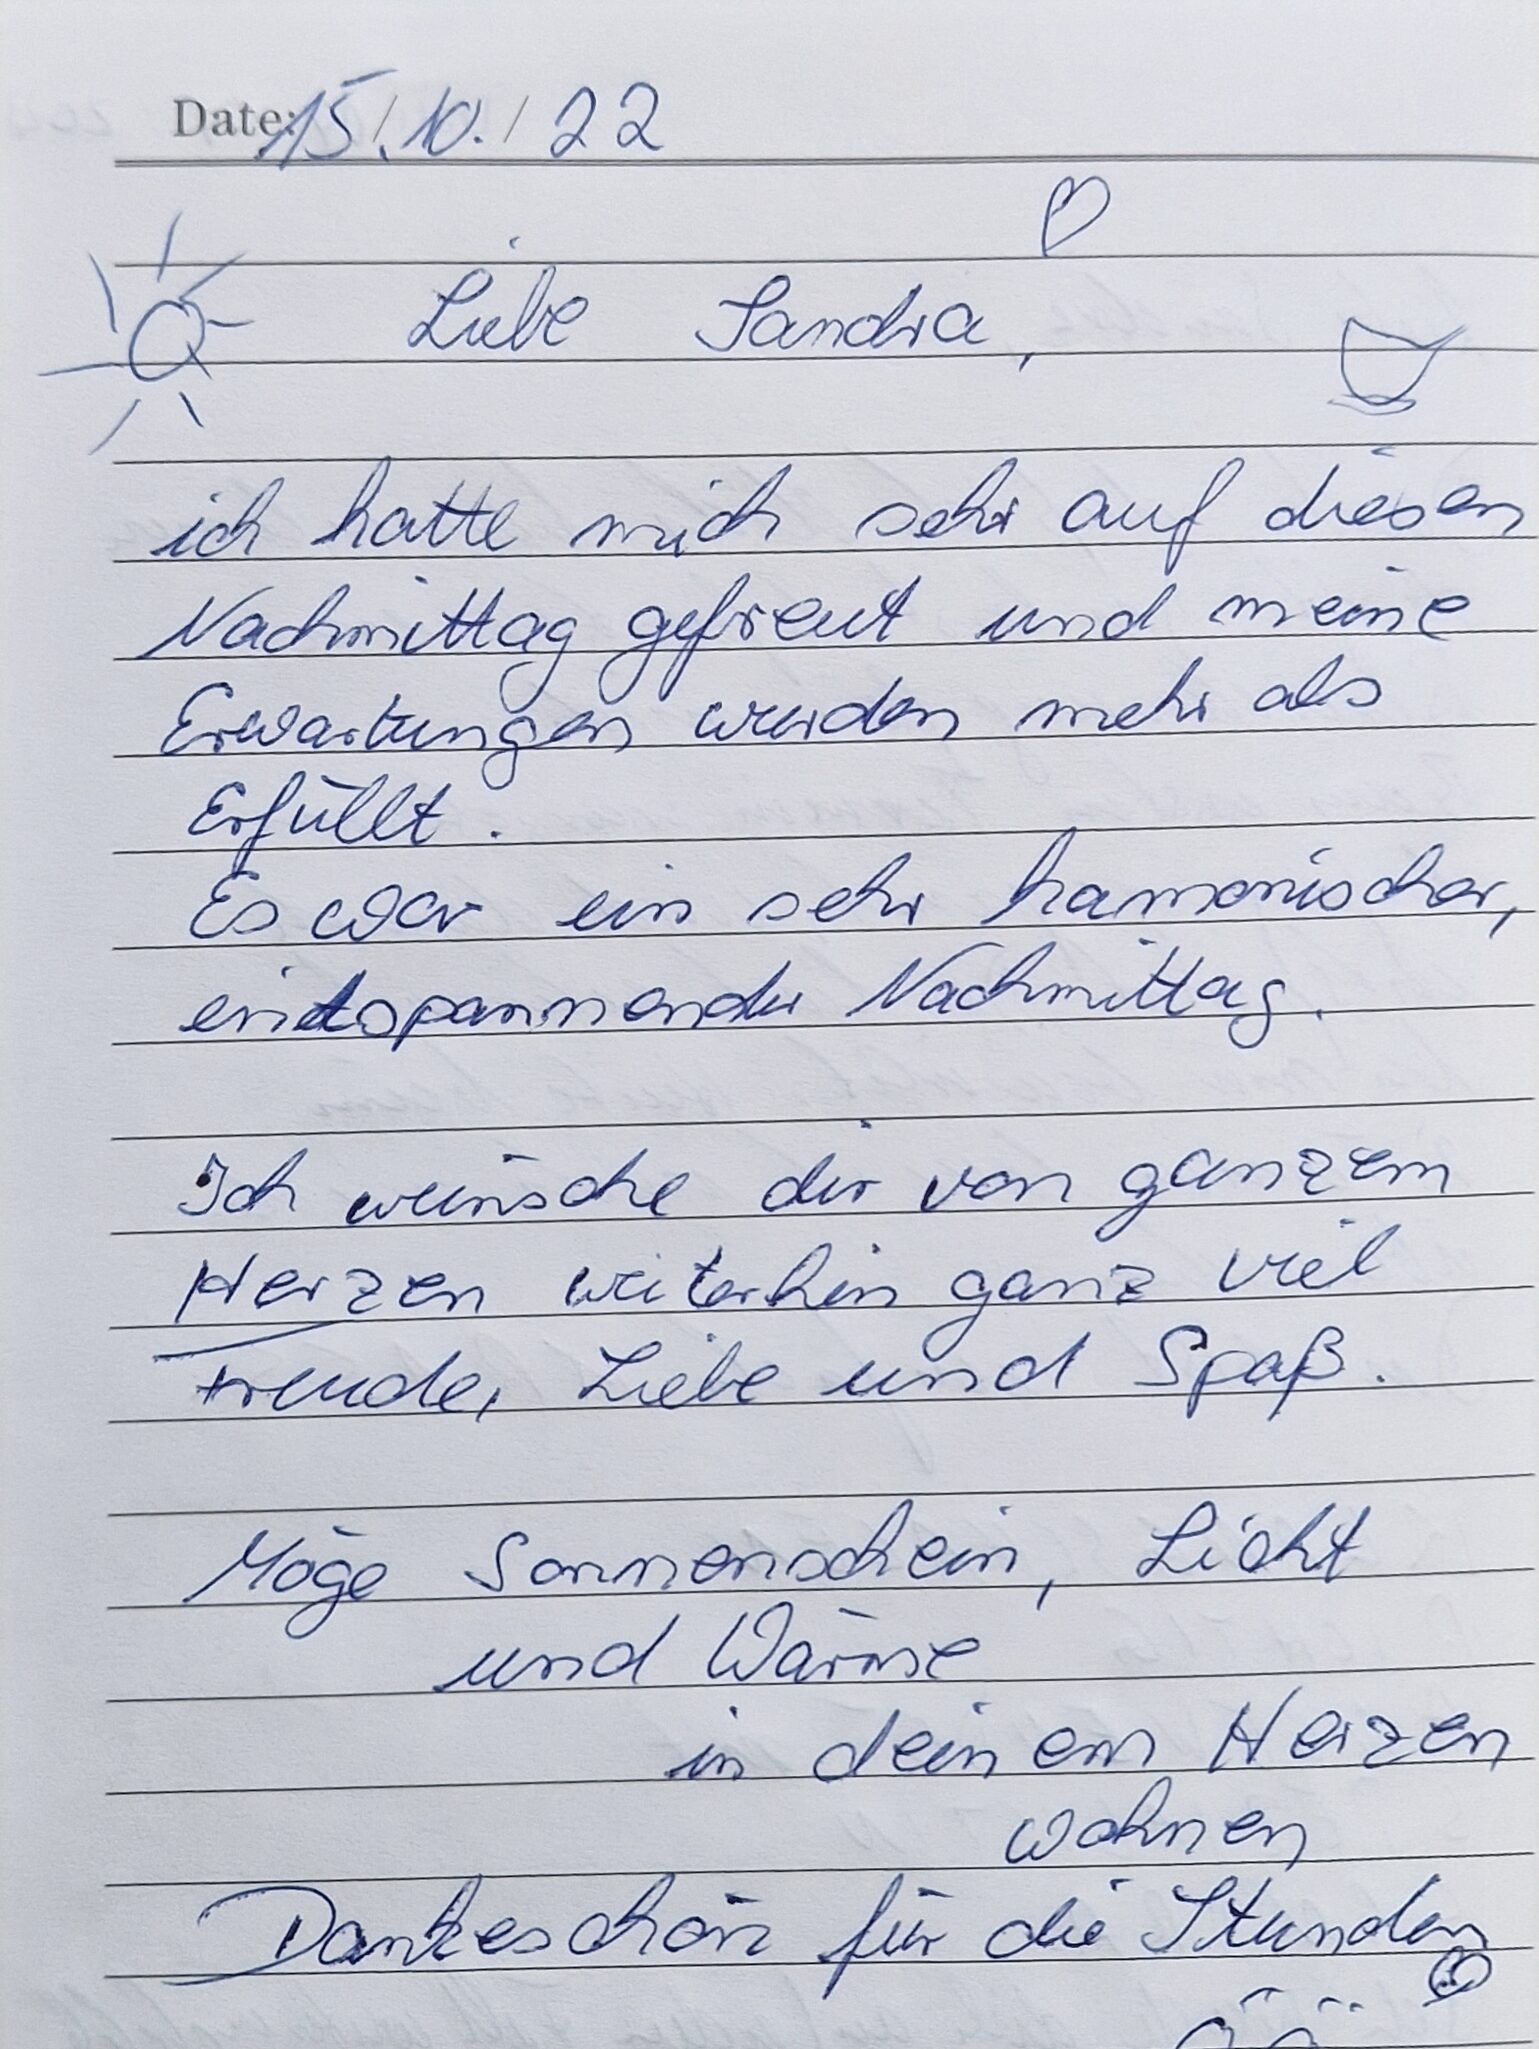 Date: 15./10./22
Liebe Sandra,
ich hatte mich sehr auf diesen
Nachmittag gefreut und meine
Erwartungen wurden mehr als
Erfüllt.
Es war ein sehr harmonischer,
entspannender Nachmittag.
Ich wünsche dir von ganzem
Herzen weiterhin ganz viel
Freude, Liebe und Spaß.
Möge Sonnenschein, Licht
und Wärme
in deinem Herzen
wohnen
Dankeschön für die Stunden